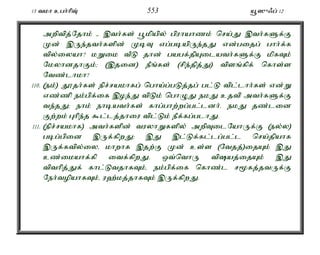 13 வமா உபர்ரிஉ 553 யூஸுஃப் 12
அறிவித்தோம் - இவர்கள் பூமியில் பிரயாணம் செய்து இவர்களுக்கு
முன் இருந்தவர்களின் முடிவு எப்படியிருந்தது என்பதைப் பார்க்க
வில்லையா? மறுமை வீடு தான் பயபக்தியுடையவர்களுக்கு மிகவும்
மேலானதாகும்; (இதனை) நீங்கள் (சிந்தித்து) விளங்கிக் கொள்ள
வேண்டாமா?
110. (நம்) தூதர்கள் நிச்சயமாகப் பொய்ப்படுத்தப் பட்டு விட்டார்கள் என்று
எண்ணி நம்பிக்கை இழந்து விடும் பொழுது நமது உதவி அவர்களுக்கு
வந்தது. நாம் நாடியவர்கள் காப்பாற்றப்பட்டனர். நமது தண்டனை
குற்றம் புரிந்த கூட்டத்தாரை விட்டும் நீக்கப்படாது.
111. (நிச்சயமாக) அவர்களின் வரலாறுகளில் அறிவுடையோருக்கு (நல்ல)
படிப்பினை இருக்கிறது; இது இட்டுக்கட்டப்பட்ட செய்தியாக
இருக்கவில்லை, மாறாக இதற்கு முன் உள்ள (வேதத்)தையும் இது
உண்மையாக்கி வைக்கிறது. ஒவ்வொரு விஷயத்தையும் இது
விவரித்துக் காட்டுவதாகவும், நம்பிக்கை கொண்ட சமூகத்தவருக்கு
நேர்வழியாகவும், ரஹ்மத்தாகவும் இருக்கிறது.